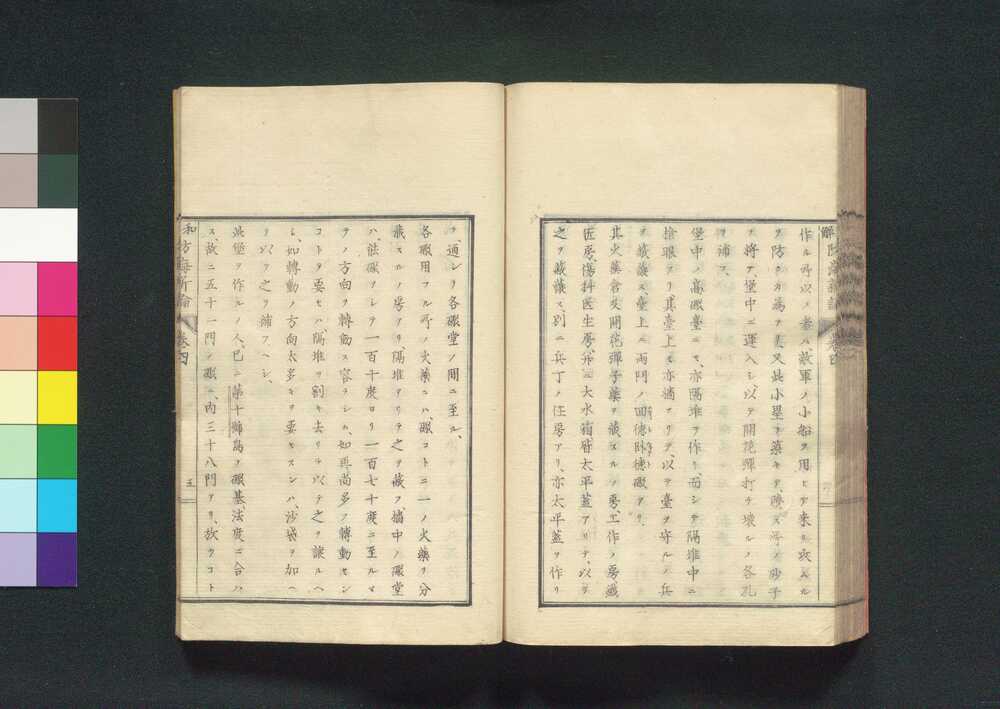 作ル所以ノ者ハ敵軍ノ小船ヲ用ヒテ来リ攻ムル
ヲ防クカ為ナリ又此小塁ヲ築キテ隙ス所ノ砂子
ヲ将テ堡中ニ運入シ以テ開花弾打チ壊ルノ各孔
ヲ補フ
堡中ノ高礟臺ニモ亦隔堆ヲ作リ而シテ隔堆中ニ
槍眼ヲリ其臺上ニ亦墻アリテ以テ臺ヲ守ルノ兵
ヲ蔵護ス臺上ニ両門ノ回徳臥徳礟アリ
其火薬倉及開花弾子薬ヲ蔵スルノ房工作ノ房鐵
匠房傷科医生房並ニ大水箱皆太平蓋アリテ以テ
之ヲ蔵護ス別ニ兵丁ノ住房アリ亦太平蓋ヲ作リ
ヲ通シリ各礟堂ノ間ニ至ル
各礟用フル所ノ火薬ニハ礟コトニ一ノ火薬ヲ分
蔵スルノ房アリ隔堆アリテ之ヲ蔽フ墻中ノ礟堂
ハ能礟ヲシテ一百十度ヨリ一百七十度ニ至ルマ
テノ方向ヲ轉動ス容ラシム如再尚多ク轉動セン
コトヲ要セハ隔堆ヲ割キ去リル以テ之ヲ讓ルヘ
シ如轉動ノ方向太多キヲ要セスンハ沙袋ヲ加ヘ
リ以テ之ヲ補フヘシ
此堡ヲ作ルノ人已ニ第十瑯島ヲ礟基法度ニ合ハ
ス故ニ五十一門ノ礟ニ内三十八門アリ放ツコト
防海新論 巻四
五